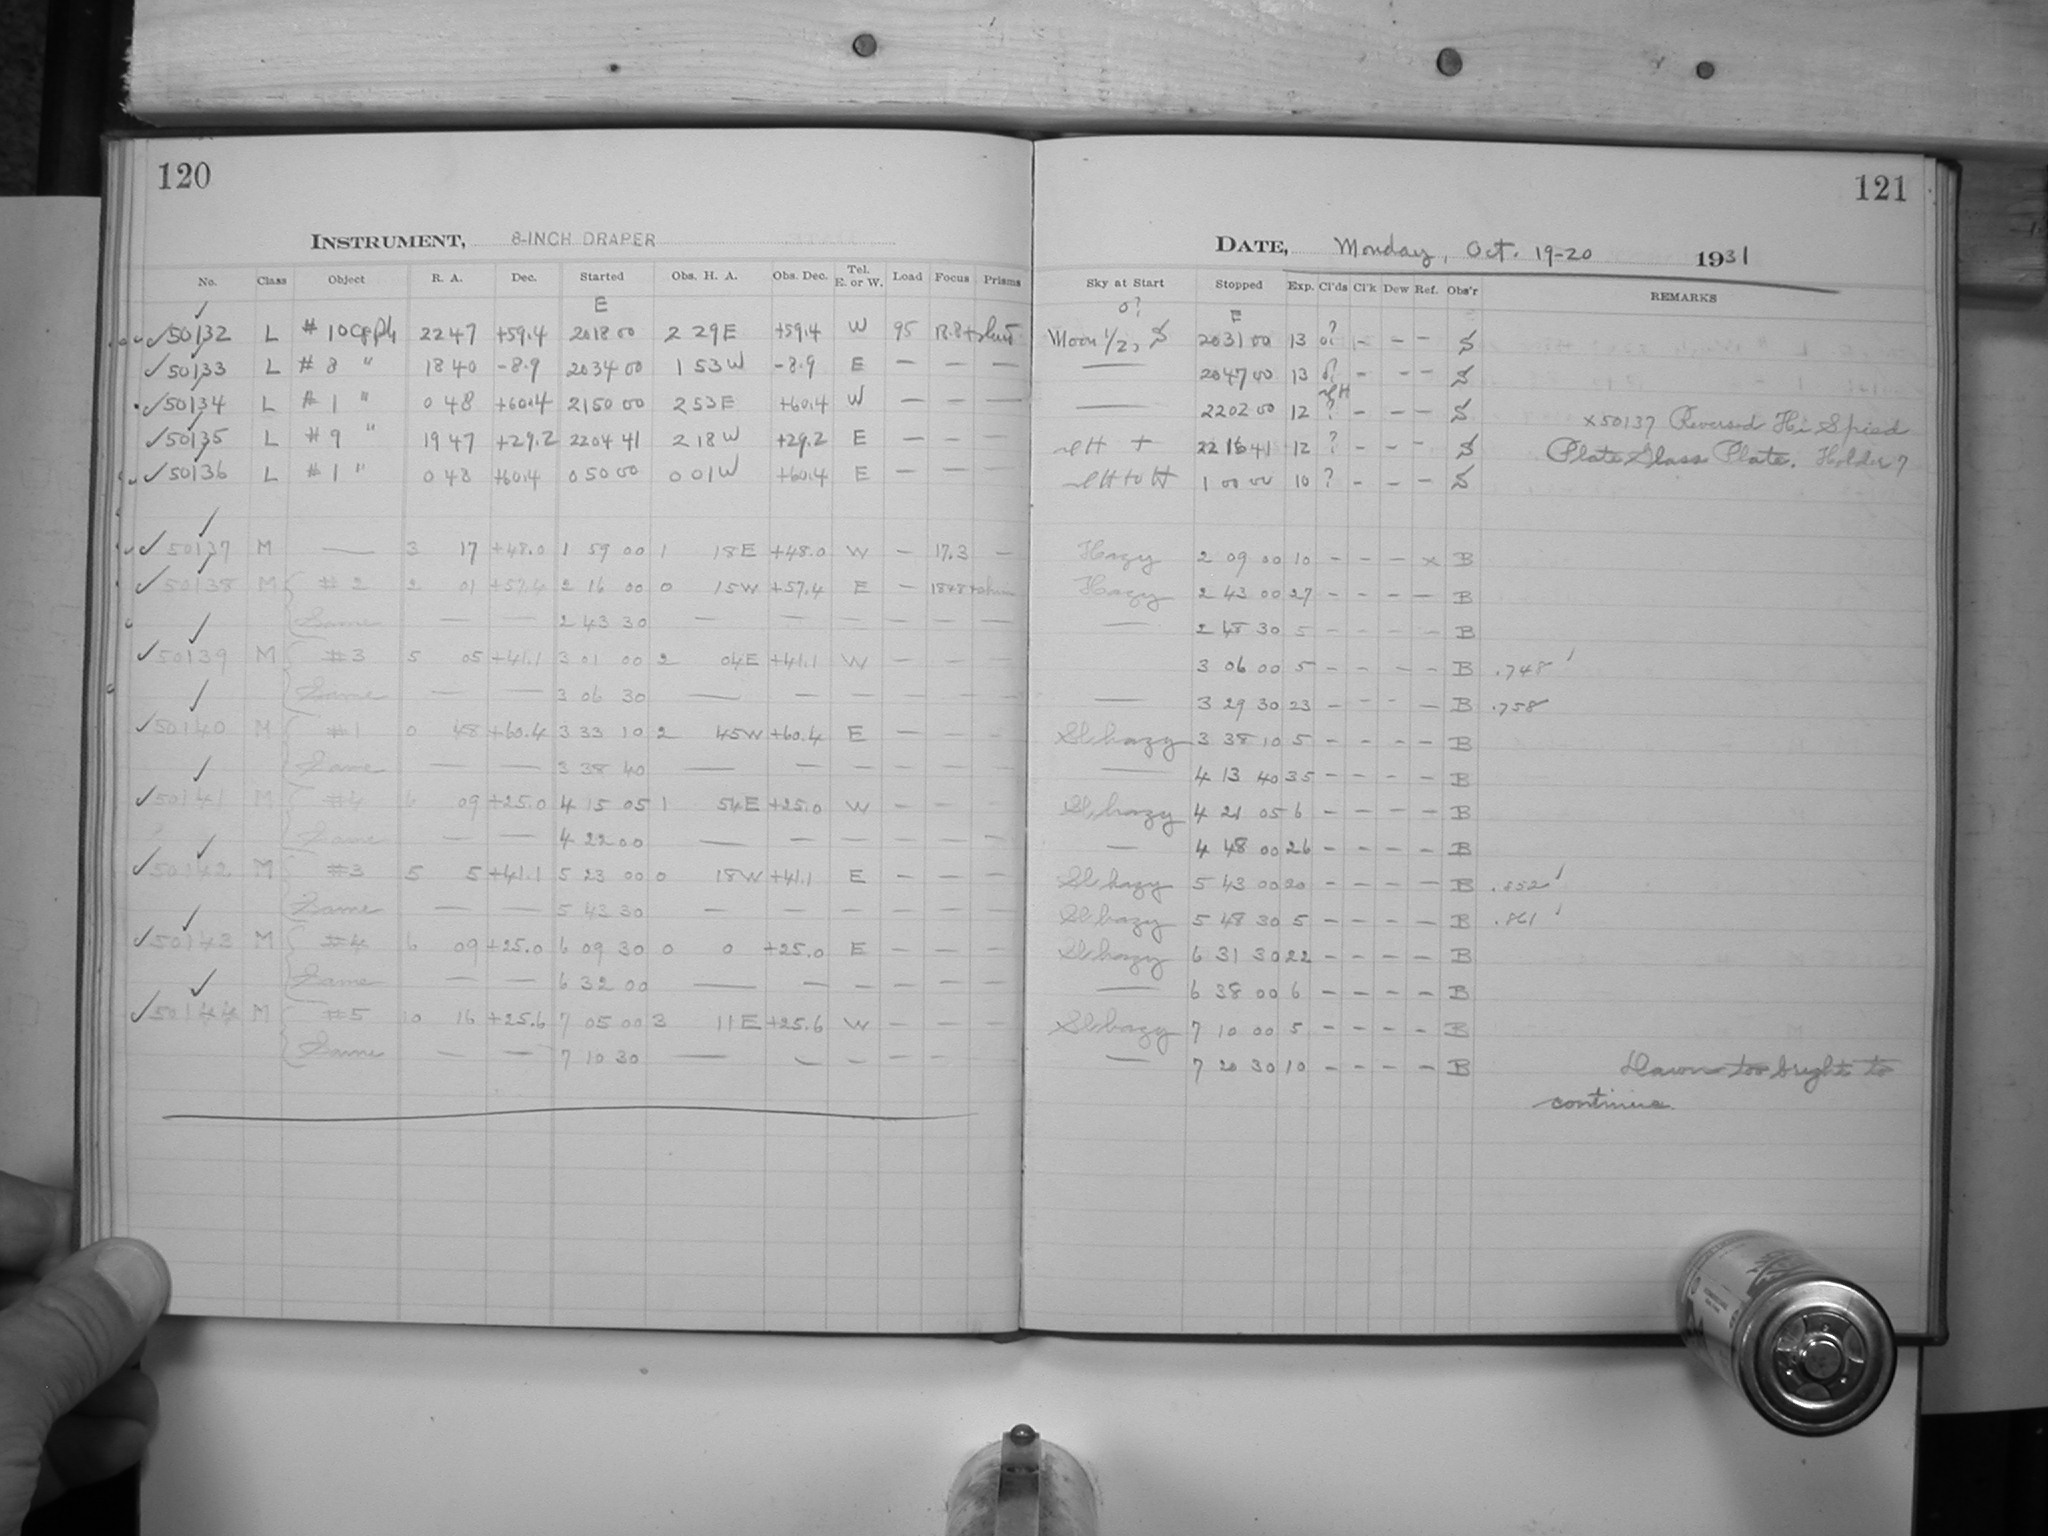 120
INSTRUMENT, 8-INCH DRAPER
No. Class Object R. A. Dec. Started Obs. H. A. Obs. Dec. Tel. E. or W. Load Focus Prisms
E
50132 L # 10 22 47 +59.4 20 18 00 2 29 E +59.4 W 95
50133 L # 8 " 18 40 -8.9 20 34 00 1 53 W -8.9 E — — —
50134 L # 1 " 0 48 +60.4 21 50 00 2 53 E +60.4 W — — —
50135 L # 9 " 19 47 +29.2 22 04 41 2 18 W +29.2 E — — —
50136 L # 1 " 0 48 +60.4 0 50 00 0 01 W +60.4 E — — —
50137 M — 3 17 +48.0 1 59 00 1 18 E +48.0 W — 17.3 —
50138 M # 2 2 01 +57.4 2 16 00 0 15 W +57.4 E —
Same — — 2 43 30 — — — — — —
50139 M # 3 5 05 +41.1 3 01 00 2 04 E +41.1 W — — —
Same — — 3 06 30 — — — — — —
50140 M # 1 0 48 +60.4 3 33 10 2 45 W +60.4 E — — —
Same — — 3 38 40 — — — — — —
50141 M # 4 6 09 +25.0 4 15 05 1 54 E +25.0 W — — —
Same — — 4 22 00 — — — — — —
50142 M # 3 5 5 +41.1 5 23 00 0 18 W +41.1 E — — —
Same — — 5 43 30 — — — — — —
50143 M # 4 6 09 +25.0 6 09 30 0 0 +25.0 E — — —
Same — — 6 32 00 — — — — — —
50144 M # 5 10 16 +25.6 7 05 00 3 11 E +25.6 W — — —
Same — — 7 10 30 — — — — — —
121
DATE, Monday, Oct. 19-20 1931
Sky at Start Stopped Exp. Cl'ds Cl'k Dew Ref. Obs'r REMARKS
E
Moon 1/2, S 20 31 00 13 - - - S
— 20 47 00 13 - - - S
— 22 02 00 12 ? - - - S
x50137 Reversed Hi Speed
22 16 41 12 ? - - - S
Plate Glass Plate. Holder 7
1 00 00 10 ? - - - S
Hazy 2 09 00 10 - - - x B
Hazy 2 43 00 27 - - - - B
— 2 48 30 5 - - - - B
3 06 00 5 - - - - B .748
— 3 29 30 23 - - - - B .758
Sl. hazy 3 38 10 5 - - - - B
— 4 13 40 35 - - - - B
Sl. hazy 4 21 05 6 - - - - B
— 4 48 00 26 - - - - B
Sl. hazy 5 43 00 20 - - - - B .852
Sl. hazy 5 48 30 5 - - - - B .861
Sl. hazy 6 31 30 22 - - - - B
— 6 38 00 6 - - - - B
Sl. hazy 7 10 00 5 - - - - B
— 7 20 30 10 - - - - B
Dawn too bright to
continue.